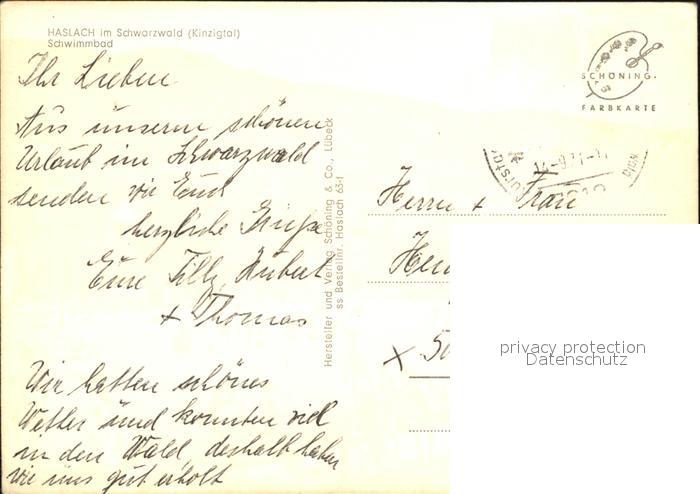 HASLACH im Schwarzwald (Kinzigtal)
Schwimmbad
Ihr Lieben
Aus unserem schönen
Urlaub im Schwarzwald
senden wir Euch
herzliche Grüße
Eure Tilly, Hubert
+ Thomas
Wir hatten schönes
Wetter und konnten viel
in den Wald, deshalb haben
wir uns gut erholt
Hersteller und Verlag Schöning & Co., Lübeck
ss Bestellnr. Haslach 63-1
SCHÖNING
FARBKARTE
Herrn + Frau
privacy protection
Datenschutz